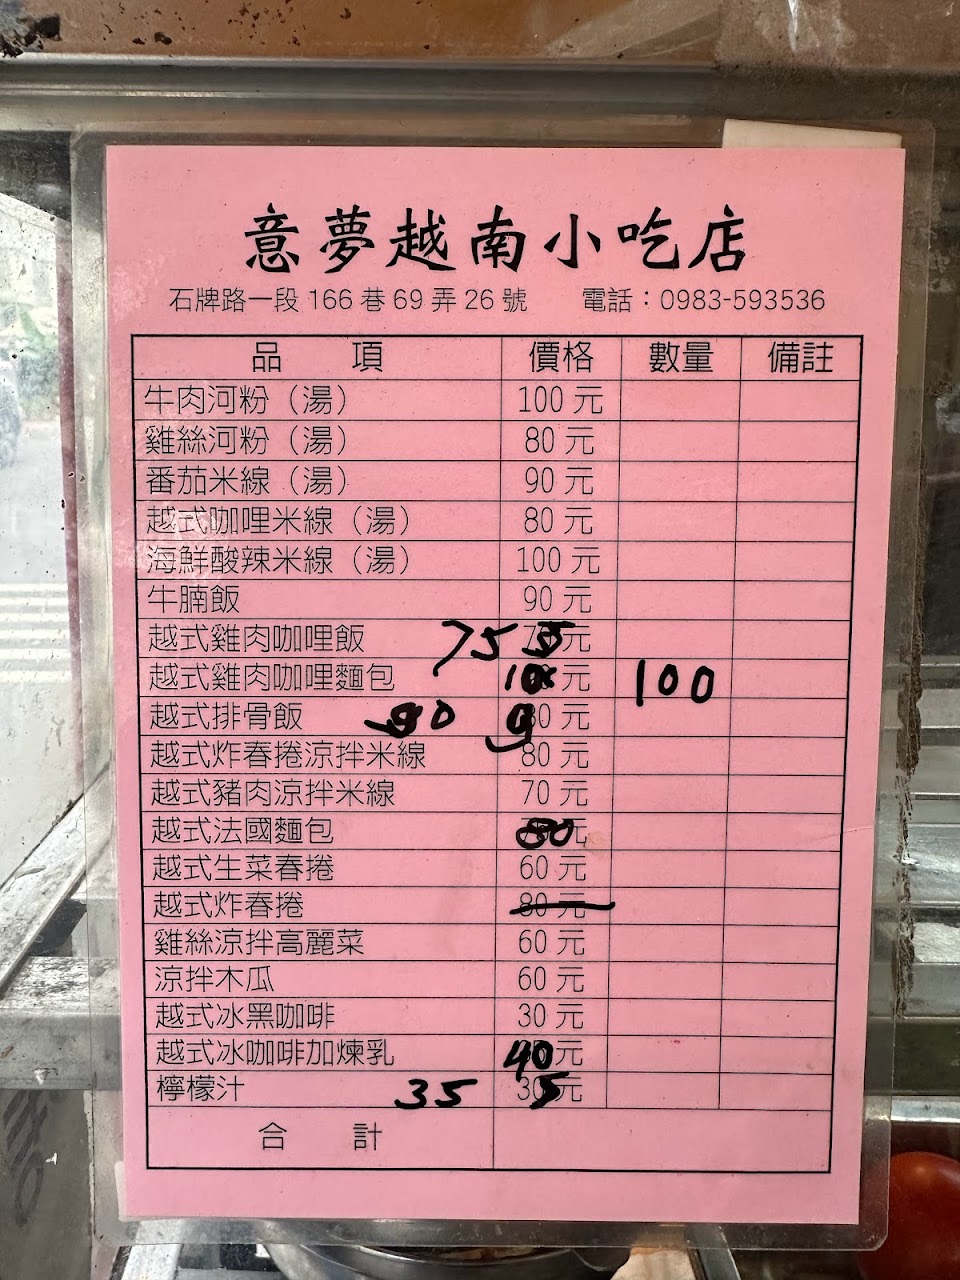 意夢越南小吃店
石牌路一段 166 巷 69 弄 26 號 電話：0983-593536
品 項 價格 數量 備註
牛肉河粉（湯） 100 元
雞絲河粉（湯） 80 元
番茄米線（湯） 90 元
越式咖哩米線（湯） 80 元
海鮮酸辣米線（湯） 100 元
牛腩飯 90 元
越式雞肉咖哩飯 75 75 元
越式雞肉咖哩麵包 100 元 100
越式排骨飯 90 90 元
越式炸春捲涼拌米線 80 元
越式豬肉涼拌米線 70 元
越式法國麵包 80 元
越式生菜春捲 60 元
越式炸春捲 80 元
雞絲涼拌高麗菜 60 元
涼拌木瓜 60 元
越式冰黑咖啡 30 元
越式冰咖啡加煉乳 40 元
檸檬汁 35 35 元
合 計